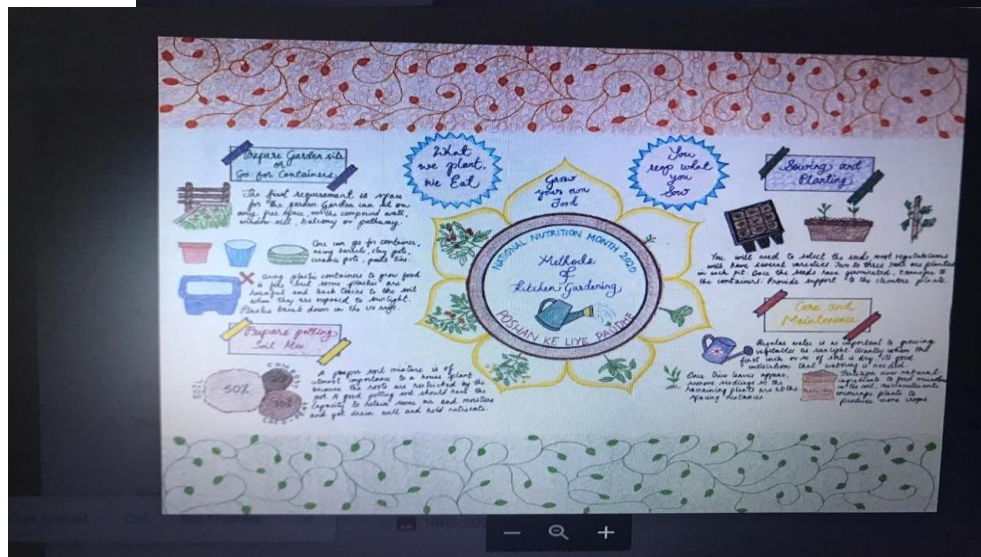 Prepare Garden site
or
Go for Containers
The first requirement is space
for the garden. Garden can be on
any free space, near the compound wall,
window-sill, balcony or pathway.
One can go for container,
using barrels, clay pots,
ceramic pots, paint tins.
Using plastic containers to grow food
is fine but some plastics are
harmful and leach toxins to the soil
when they are exposed to sunlight.
Plastics break down in the UV rays.
Prepare potting
Soil Mix
50%
A proper soil mixture is of
utmost importance to a house plant
because the roots are restricted by the
pot. A good potting soil should have the
capacity to retain some air and moisture
and yet drain well and hold nutrients.
What
we plant,
We Eat
Grow
your own
Food
You
reap what
you
Sow
NATIONAL NUTRITION MONTH 2020
Methods
of
Kitchen Gardening
POSHAN KE LIYE PAUDHE
Sowing and
Planting
You will need to select the seeds most vegetables
will have several varieties. Two to three seeds are planted
in each pit. Once the seeds have germinated, transfer to
the containers. Provide support to the climbers plants.
Care and
Maintenance
Regular water is as important to growing
vegetables as sunlight. Usually when the
first inch or so of soil is dry, its good
indication that watering is needed.
Once two leaves appear,
remove seedlings so the
remaining plants are at the
spacing distance.
natural
ingredients to feed microbes
in the soil,
encourage plants to
produce more crops.